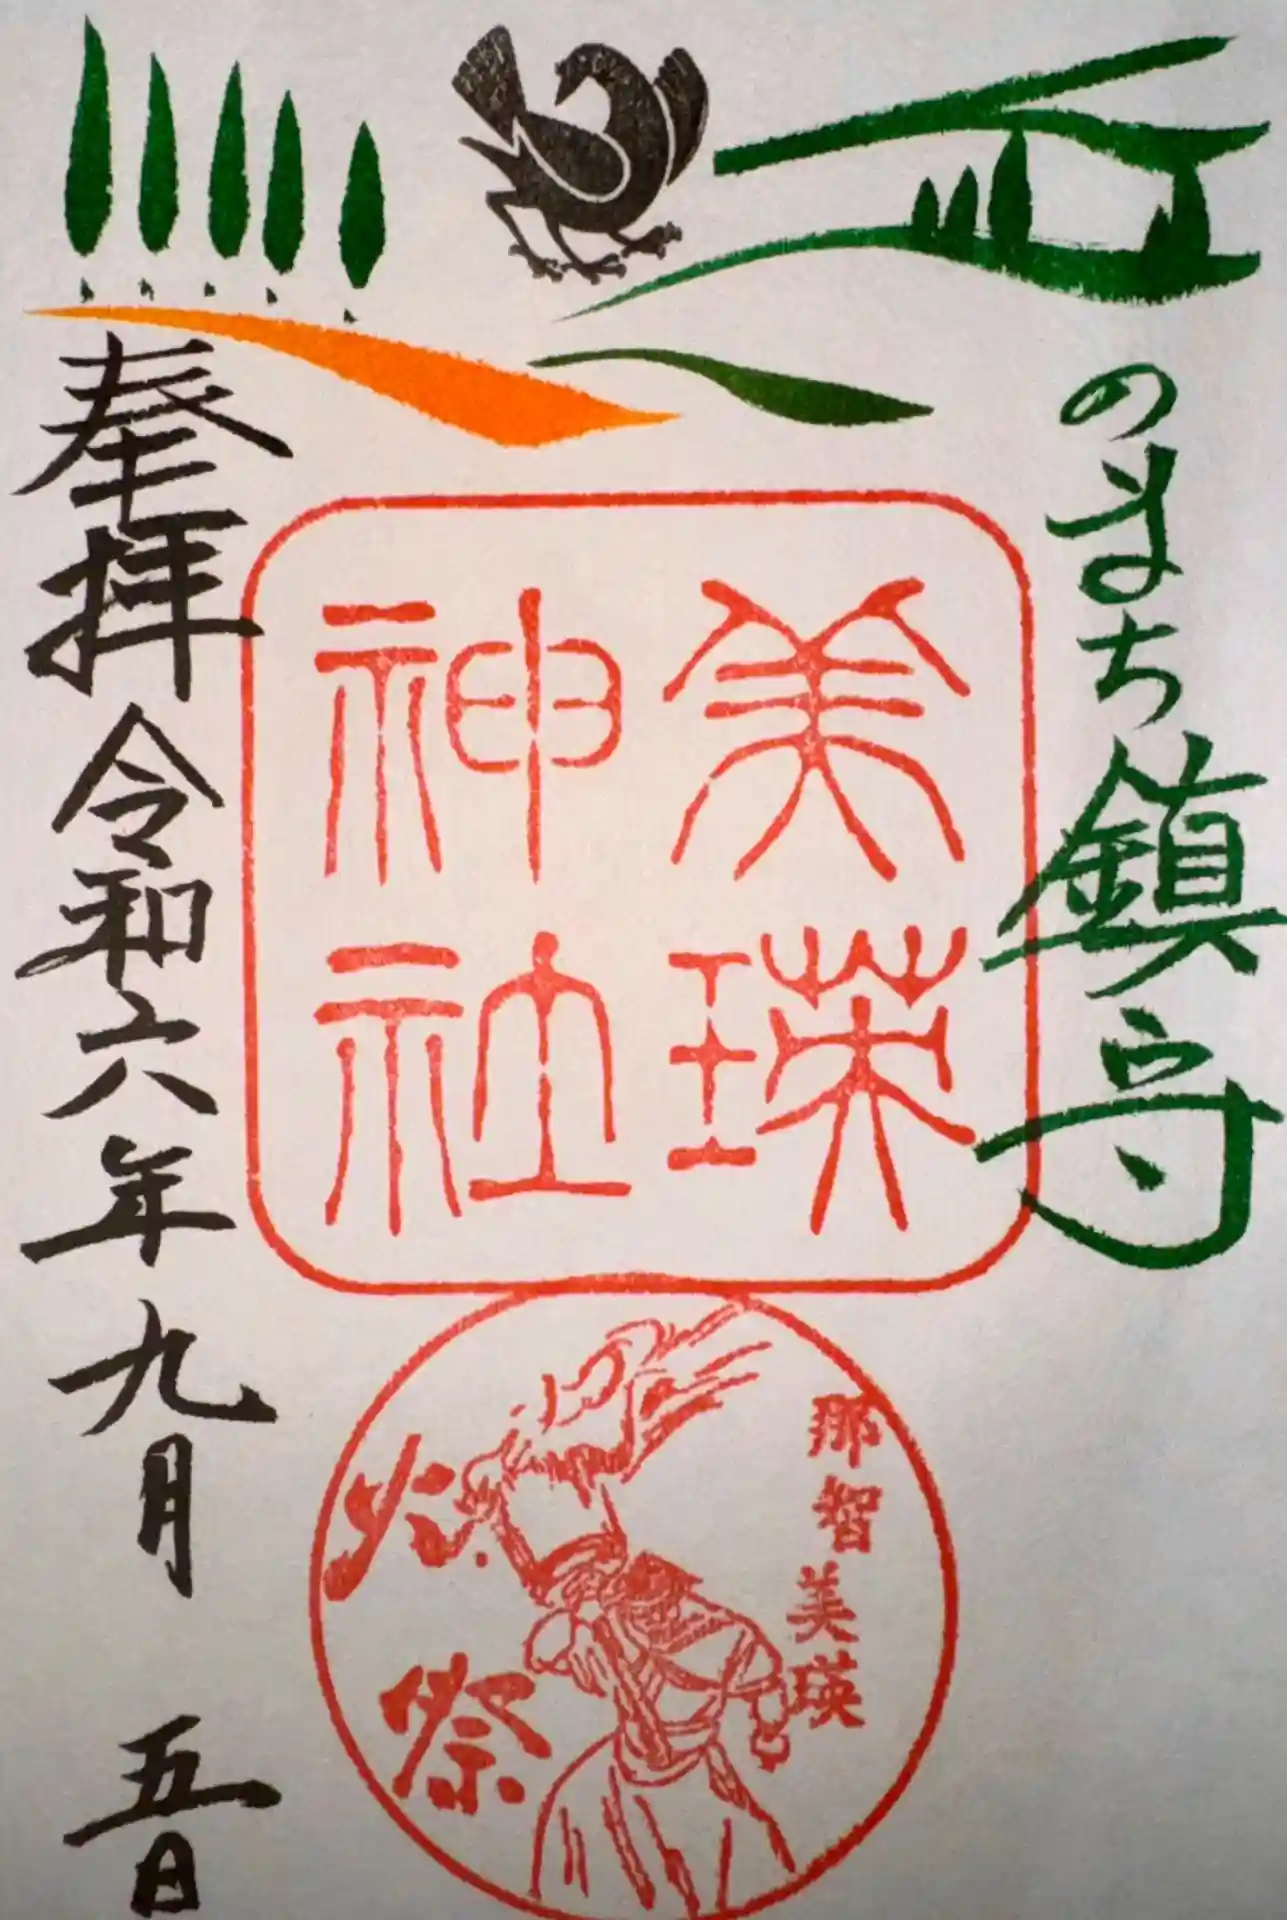 のまち鎮守
美瑛
神社
那智美瑛
火祭
奉拝 令和六年九月五日